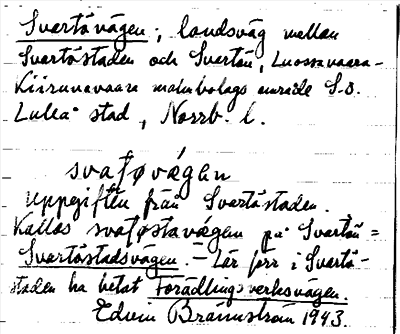 Svartövägen; landsväg mellan
Svartöstaden och Svartön, Luossavaara-
Kiirunavaara malmbolags område S.O.
Luleå stad, Norrb. l.
svatøvägen
Uppgiften från Svartöstaden.
Kallas svatøstavägen på Svartön =
Svartöstadsvägen. – Lär förr i Svartö-
staden ha hetat Förädlingsverksvägen.
Edvin Brännström 1943.